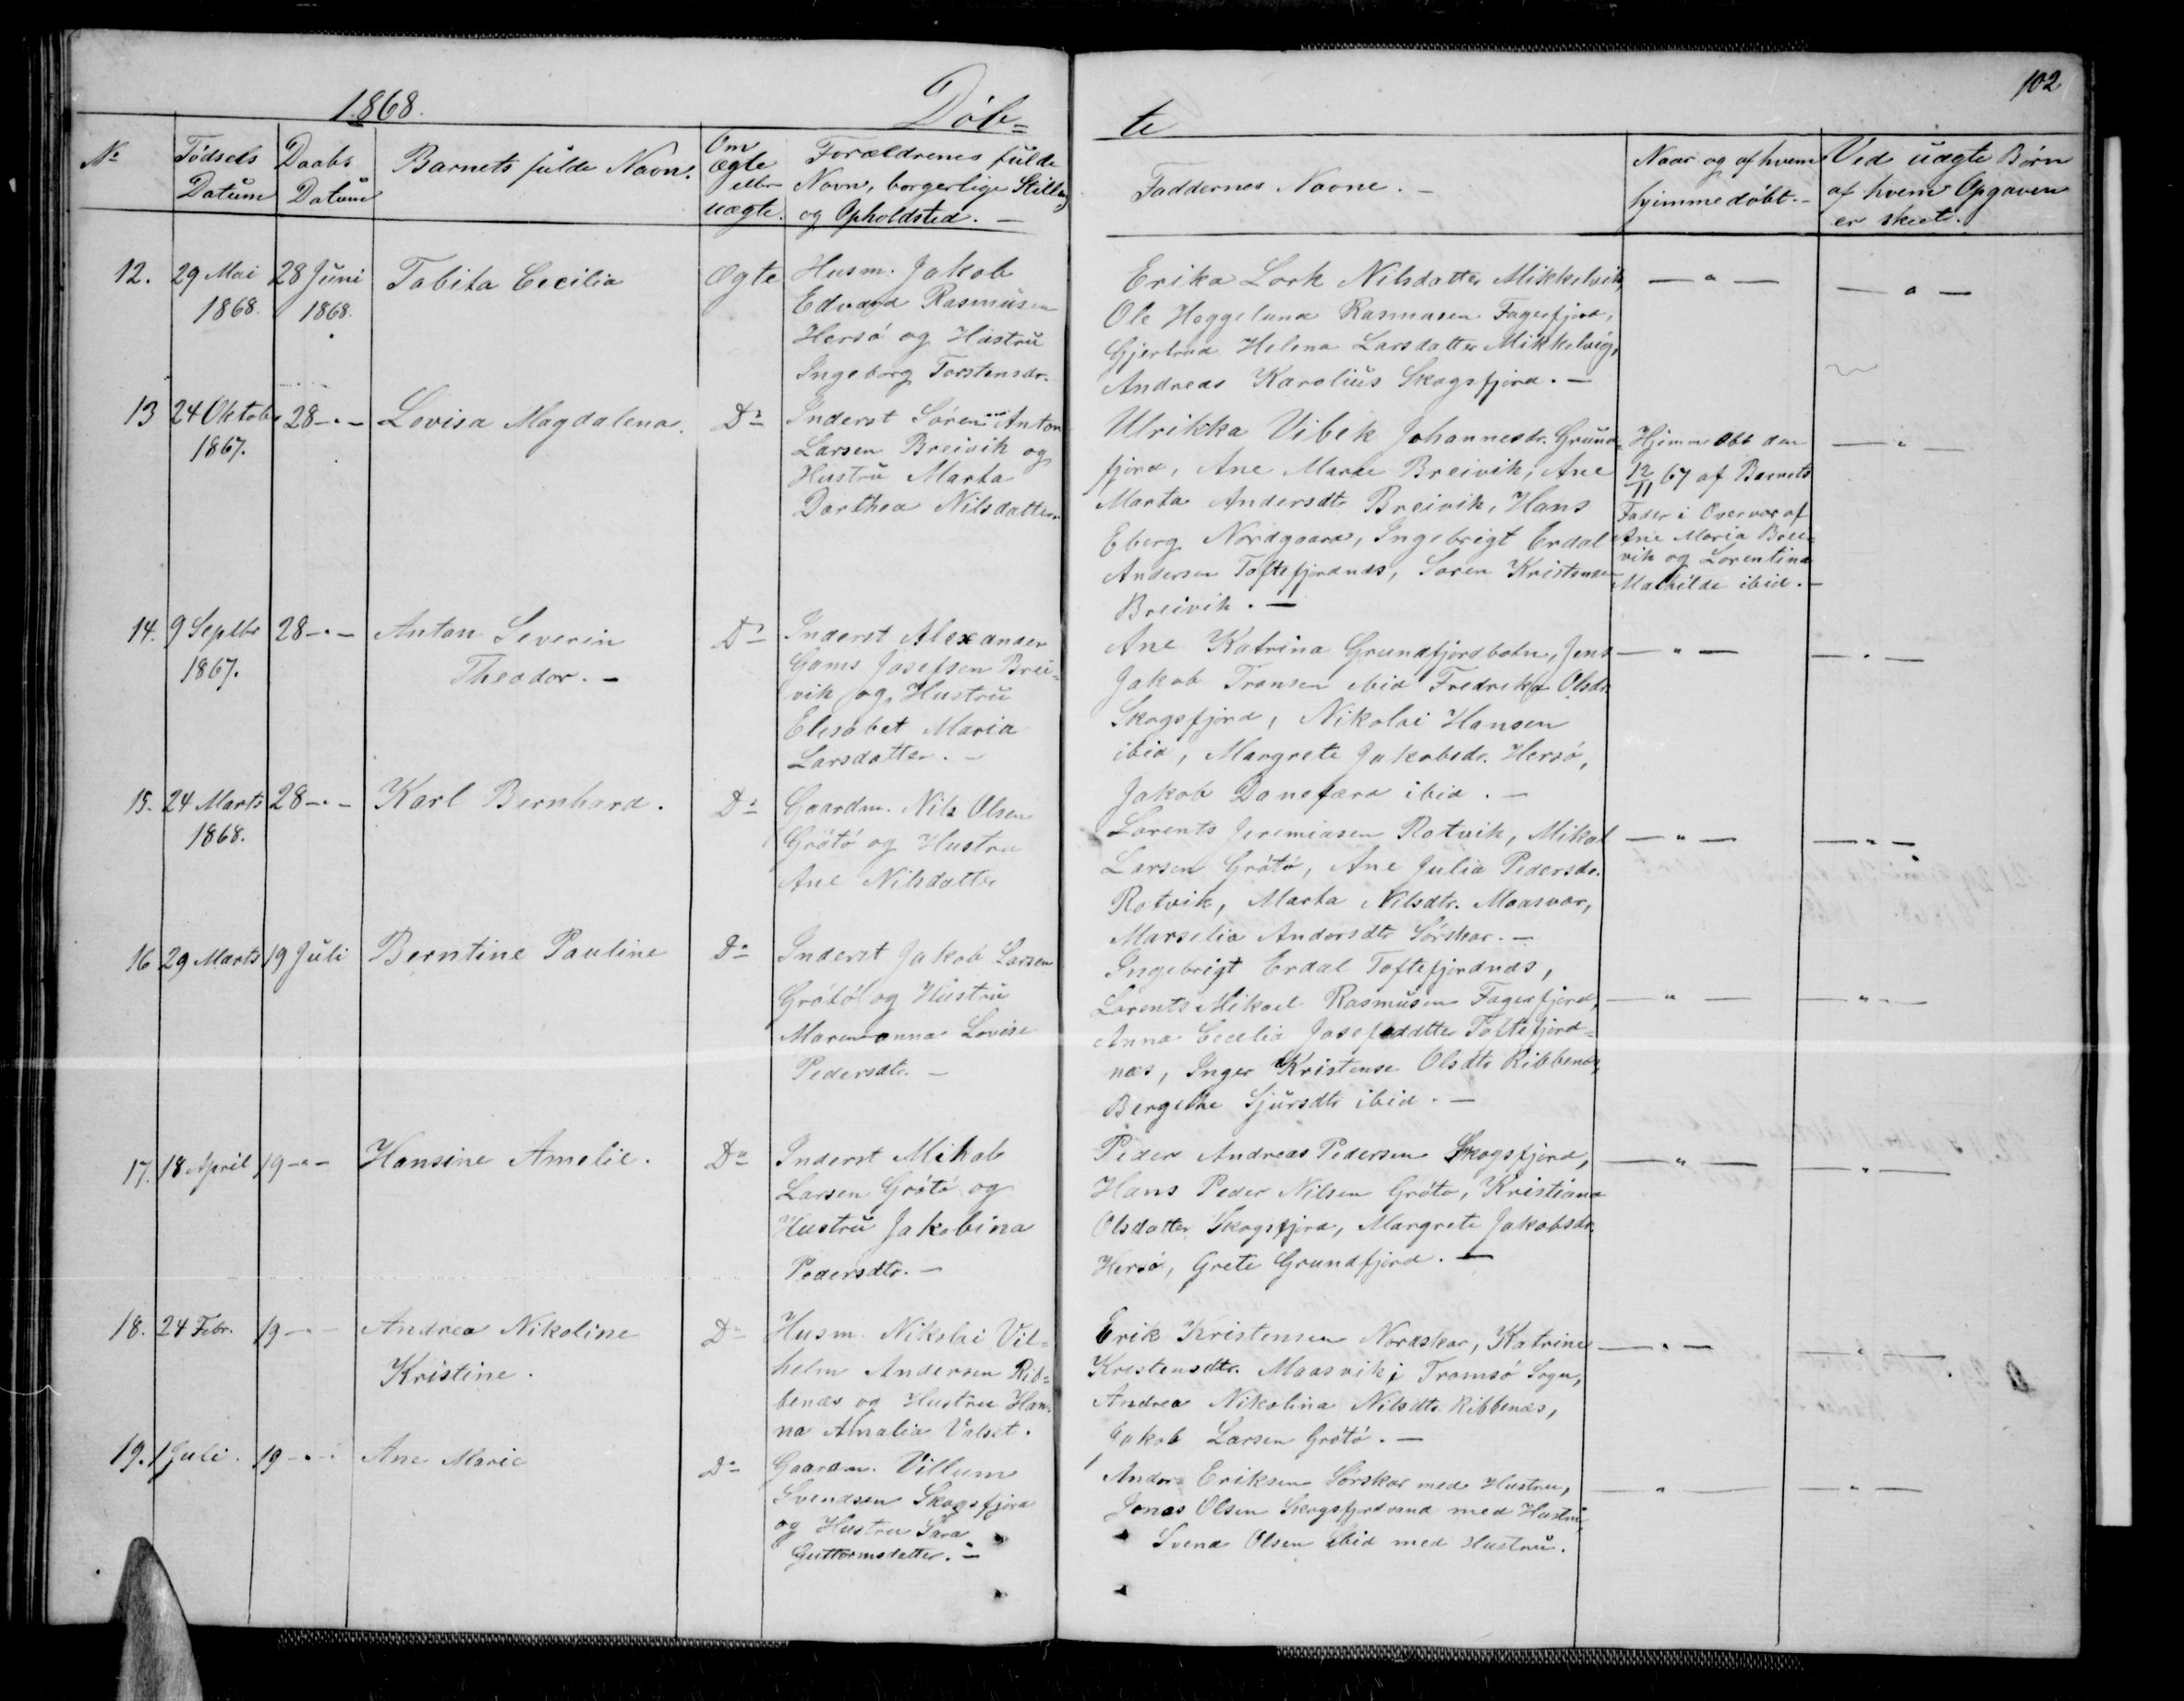 102
1868.
Döb=
te
No
Födsels Datum
Daabs Datum
Barnets fulde Navn.
Om ægte eller uægte.
Forældrenes fulde Navn, borgerlige Stilling og Opholdsted. —
Faddernes Navne. —
Naar og af hvem hjemmedöbt. —
Ved uægte Börn af hvem Opgaven er skeet.
12. 29 Mai 1868. 28 Juni 1868. Tabita Cecilia Ægte
Husm. Jakob
Edvard Rasmusen
Hersö og Hustru
Ingeborg Torstensdr.
Erika Lork Nilsdatter Mikkelvik,
Ole Heggelund Rasmusen Fagerfjord,
Gjertrud Helena Larsdatter Mikkelvig,
Andreas Karolius Skogsfjord. —
— " —
— " —
13 24 Oktobr 1867. 28 — " — Lovisa Magdalena. Do
Inderst Sören Anton
Larsen Breivik og
Hustru Marta
Dorthea Nilsdatter
Ulrikka Vibek Johannesdr. Grund=
fjord, Ane Marie Breivik, Ane
Marta Andersdtr Breivik, Hans
Eberg Nordgaard, Ingebrigt Erdal
Andersen Toftefjordnæs, Soren Kristensen
Breivik. —
Hjemmedöbt den
12/11 67 af Barnets
Fader i Overvær af
Ane Maria Brei=
vik og Lorentina
Mathilde ibid. —
— " —
14. 9 Septbr 1867. 28 — " — Anton Severin
Theodor. — Do
Inderst Alexander
Gams Josefsen Brei=
vik og Hustru
Elisabet Maria
Larsdatter. —
Ane Katrina Grundfjordbotn, Jens
Jakob Fransen ibid Fredrika Olsdr.
Skogsfjord, Nikolai Hansen
ibid, Margrete Jakobsdr. Hersö,
Jakob Danefærd ibid. —
— " —
— " —
15. 24 Marts 1868. 28 — " — Karl Bernhard. Do
Gaardm. Nils Olsen
Grötö og Hustru
Ane Nilsdatter
Lorents Jeremiasen Rotvik, Mikal
Larsen Grötö, Ane Julia Pedersdr.
Rotvik, Marta Nilsdtr. Maasvær,
Marselia Andersdtr Sörskar. —
— " —
— " —
16 29 Marts 19 Juli Berntine Pauline Do
Inderst Jakob Larsen
Grötö og Hustru
Marenanna Lovise
Pedersdtr. —
Ingebrigt Erdal Toftefjordnæs,
Lorents Mikael Rasmusen Fagerfjord,
Anna Cecelia Josefsdatter Toftefjord=
næs, Inger Kristense Olsdtr Ribbenæs,
Bergethe Sjursdtr ibid. —
— " —
— " —
17. 18 April 19 — " — Hansine Amelie. Do
Inderst Mikal
Larsen Grötö og
Hustru Jakobina
Pedersdtr. —
Peder Andreas Pedersen Skogsfjord,
Hans Peder Nilsen Grötö, Kristiana
Olsdatter Skogsfjord, Margrete Jakobsdr.
Hersö, Grete Grundfjord. —
— " —
— " —
18. 24 Febr. 19 — " — Andrea Nikoline
Kristine. Do
Husm. Nikolai Vil=
helm Andersen Rib=
benæs og Hustru Han=
na Amalia Valset.
Erik Kristensen Nordskar, Katrine
Kristensdtr. Maasvik i Tromsö Sogn,
Andrea Nikolina Nilsdtr Ribbenæs,
Jakob Larsen Grötö. —
— " —
— " —
19. 1 Juli. 19 — " — Ane Marie Do
Gaardm. Villum
Svendsen Skogsfjord
og Hustru Sara
Guttormsdatter. —
Anders Eriksen Sörskar med Hustru,
Jonas Olsen Skogsfjordvand med Hustru,
Svend Olsen ibid med Hustru.
— " —
— " —